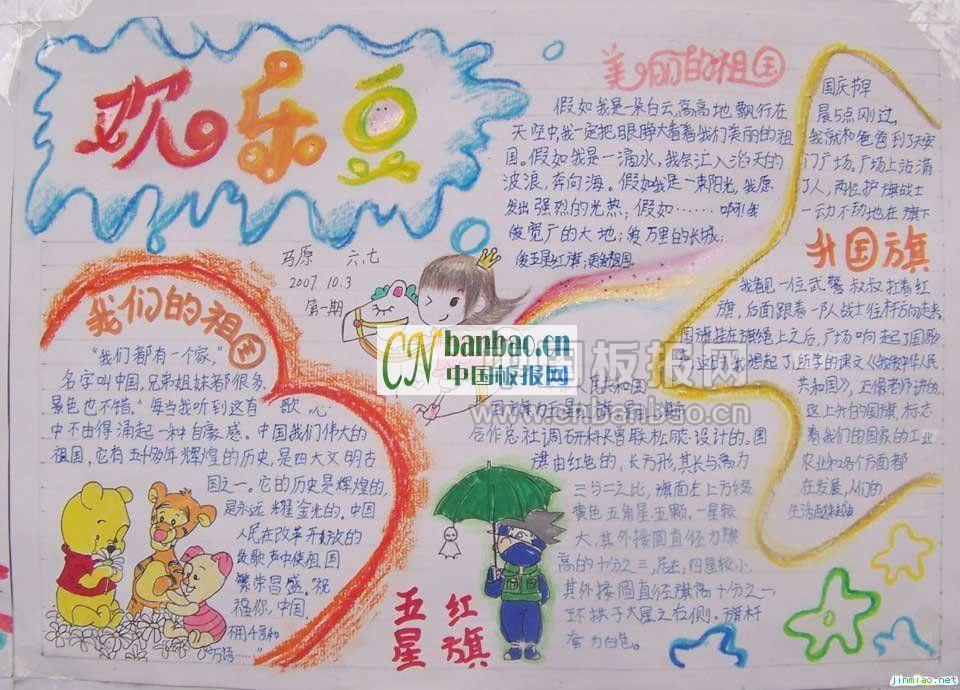 欢乐豆
马原 六.七
2007.10.3
第一期
美丽的祖国
假如我是一朵白云,高高地飘行在
天空中,我一定把眼睁大看着我们美丽的祖
国。假如我是一滴水,我会汇入滔天的
波浪,奔向海。假如我是一束阳光,我愿
发出强烈的光热;假如……啊!我
爱宽广的大地;爱万里的长城;
爱五星红旗;更爱祖国
国庆节早
晨5点刚过,
我就和爸爸到天安
门广场。广场上站满
了人,两位护旗战士
一动不动地在旗下
升国旗
我看见一位武警叔叔扛着红
旗,后面跟着一队战士往杆方向走去
国旗挂在旗绳上之后,广场响起了国歌
这时我想起了所学的课文
共和国》,五
这上升的国旗标志
着我们的国家的工业
农业和各个方面都
在发展,人们的
生活越来越
我们的祖国
“我们都有一个家,
名字叫中国,兄弟姐妹都很多,
景色也不错。”每当我听到这首歌,心
中不由得涌起一种自豪感。中国我们伟大的
祖国,它有五千多年辉煌的历史,是四大文明古
国之一。它的历史是辉煌的,
是永远耀金光的。中国
人民在改革开放的
歌声中使祖国
繁荣昌盛。祝
福你,中国。
万语……”
CN banbao.cn
中国板报网
中国板报网
www.cnbanbao.cn
合作总社调研科长曾联松同志设计的。国
旗由红色的,长方形,其长与高为
三与二之比,旗面左上方缀
黄色五角星五颗。一星较
大,其外接圆直径为旗
高的十分之三,居左,四星较小,
其外接圆直径旗高十分之一,
环拱于大星之右侧。旗杆
套为白色。
五星红旗
jinmiao.net